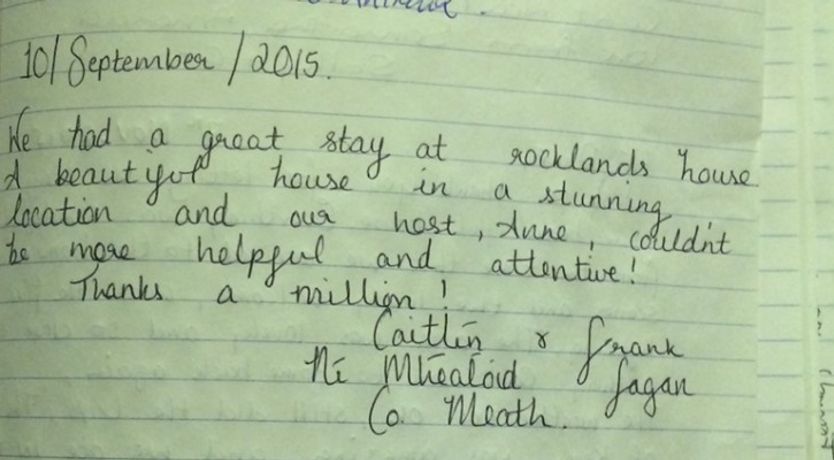 10/September/2015.
We had a great stay at rocklands house
A beautiful house in a stunning
location and our host, Anne, couldn't
be more helpful and attentive!
Thanks a million!
Caitlín & Frank
Ní Mhealóid Fagan
Co. Meath.